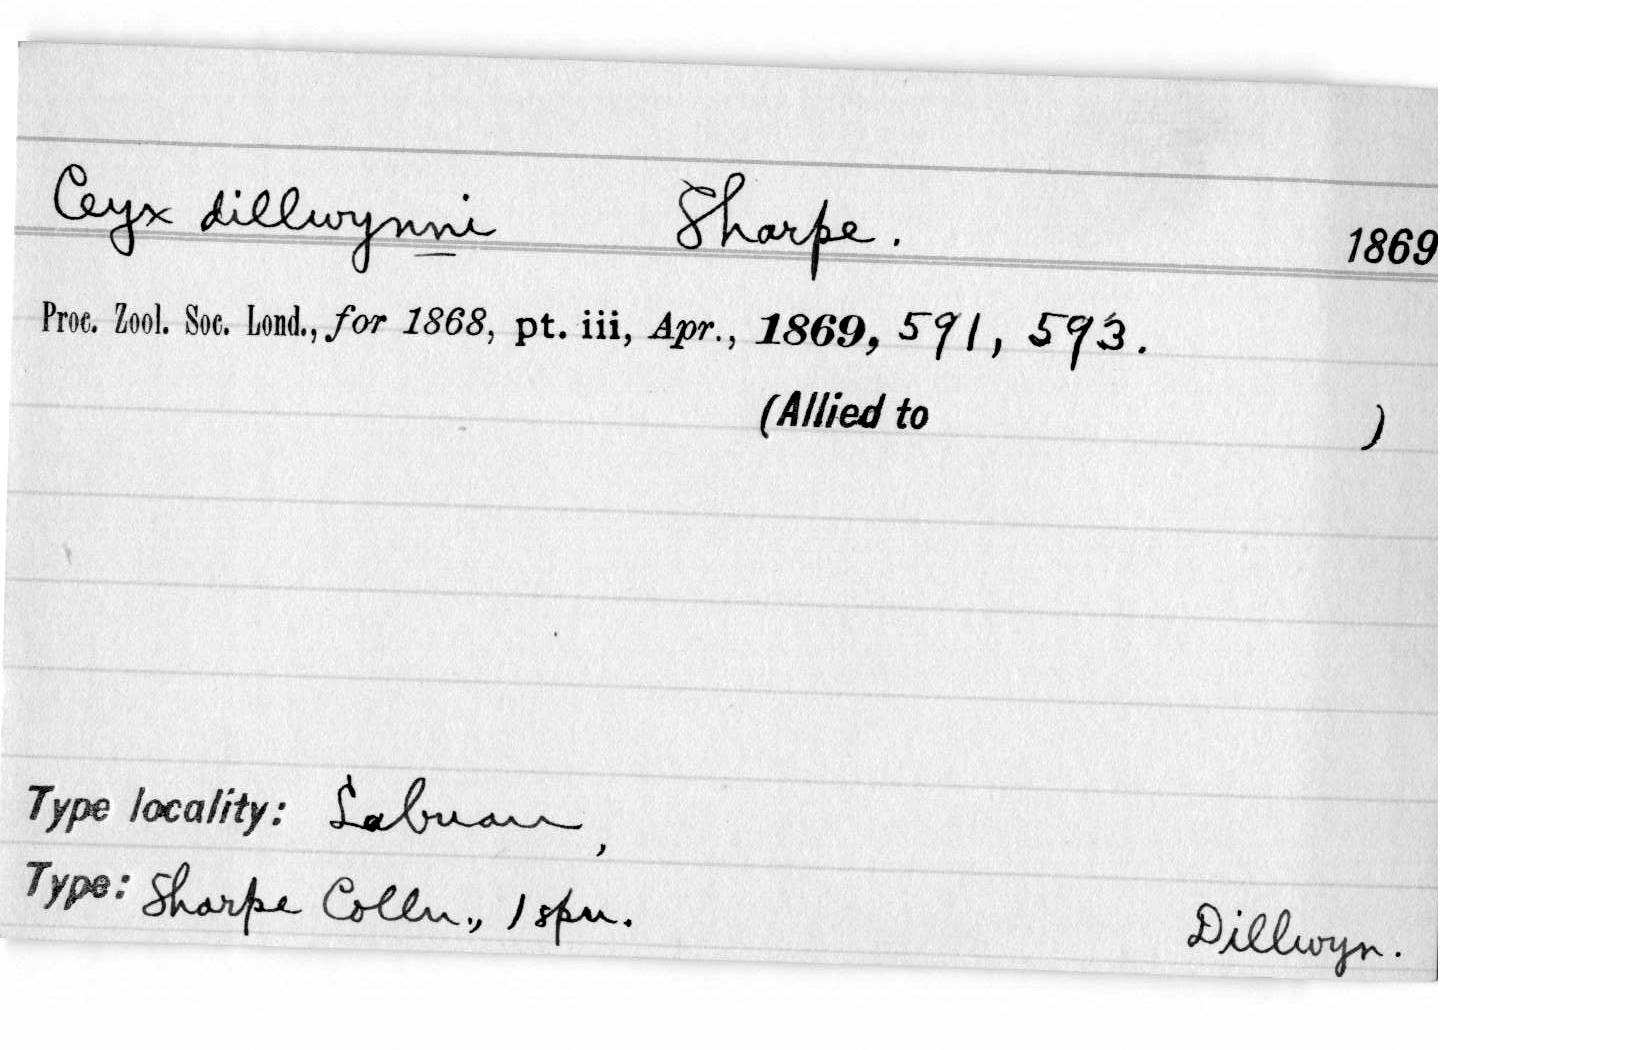 Ceyx dillwynni Sharpe. 1869
Proc. Zool. Soc. Lond., for 1868, pt. iii, Apr., 1869, 591, 593.
(Allied to )
Type locality: Labuan,
Type: Sharpe Colln., 1 spn.
Dillwyn.